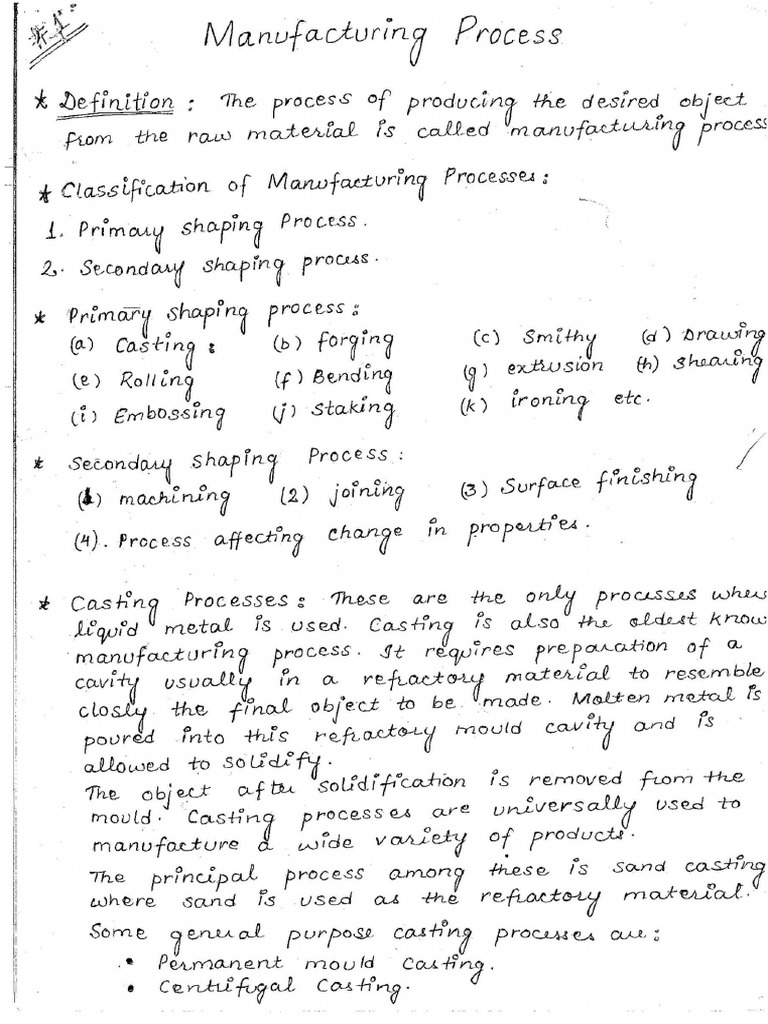 #1.
Manufacturing Process
* Definition : The process of producing the desired object
from the raw material is called manufacturing process
* Classification of Manufacturing Processes :
1. Primary shaping Process.
2. Secondary shaping process.
* Primary shaping process :
(a) Casting : (b) forging (c) Smithy (d) Drawing
(e) Rolling (f) Bending (g) extrusion (h) shearing
(i) Embossing (j) Staking (k) ironing etc.
* Secondary shaping Process :
(1) machining (2) joining (3) Surface finishing
(4). Process affecting change in properties.
* Casting Processes : These are the only processes where
liquid metal is used. Casting is also the oldest know
manufacturing process. It requires preparation of a
cavity usually in a refractory material to resemble
closly the final object to be made. Molten metal is
poured into this refractory mould cavity and is
allowed to solidify.
The object after solidification is removed from the
mould. Casting processes are universally used to
manufacture a wide variety of products.
The principal process among these is sand casting
where sand is used as the refractory material.
Some general purpose casting processes are :
• Permanent mould Casting.
• Centrifugal Casting.